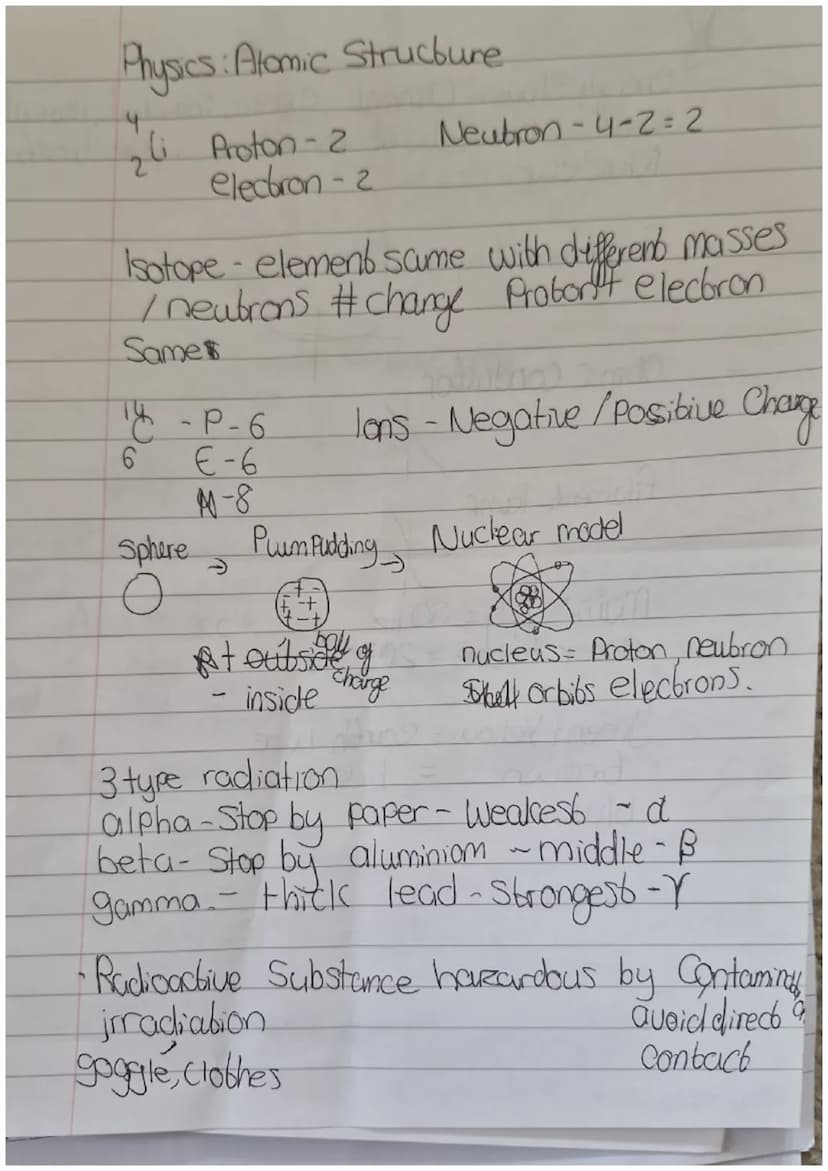 Physics: Atomic Structure
4
2 Li Proton - 2 Neutron - 4-2=2
electron - 2
Isotope - element same with different masses
/ neutrons # change Proton + electron
Same
14
C - P - 6 Ions - Negative / Possitive Charge
6 E - 6
N - 8
Sphere → Plum Pudding → Nuclear model
+ outside ball of charge nucleus = Proton, neutron
- inside Shell orbits electrons.
3 type radiation
alpha - Stop by paper - Weakest - α
beta - Stop by aluminiom - middle - β
gamma. - thick lead - Strongest - γ
· Radioactive Substance hazardous by
irradiation avoid direct
goggle, clothes Contact